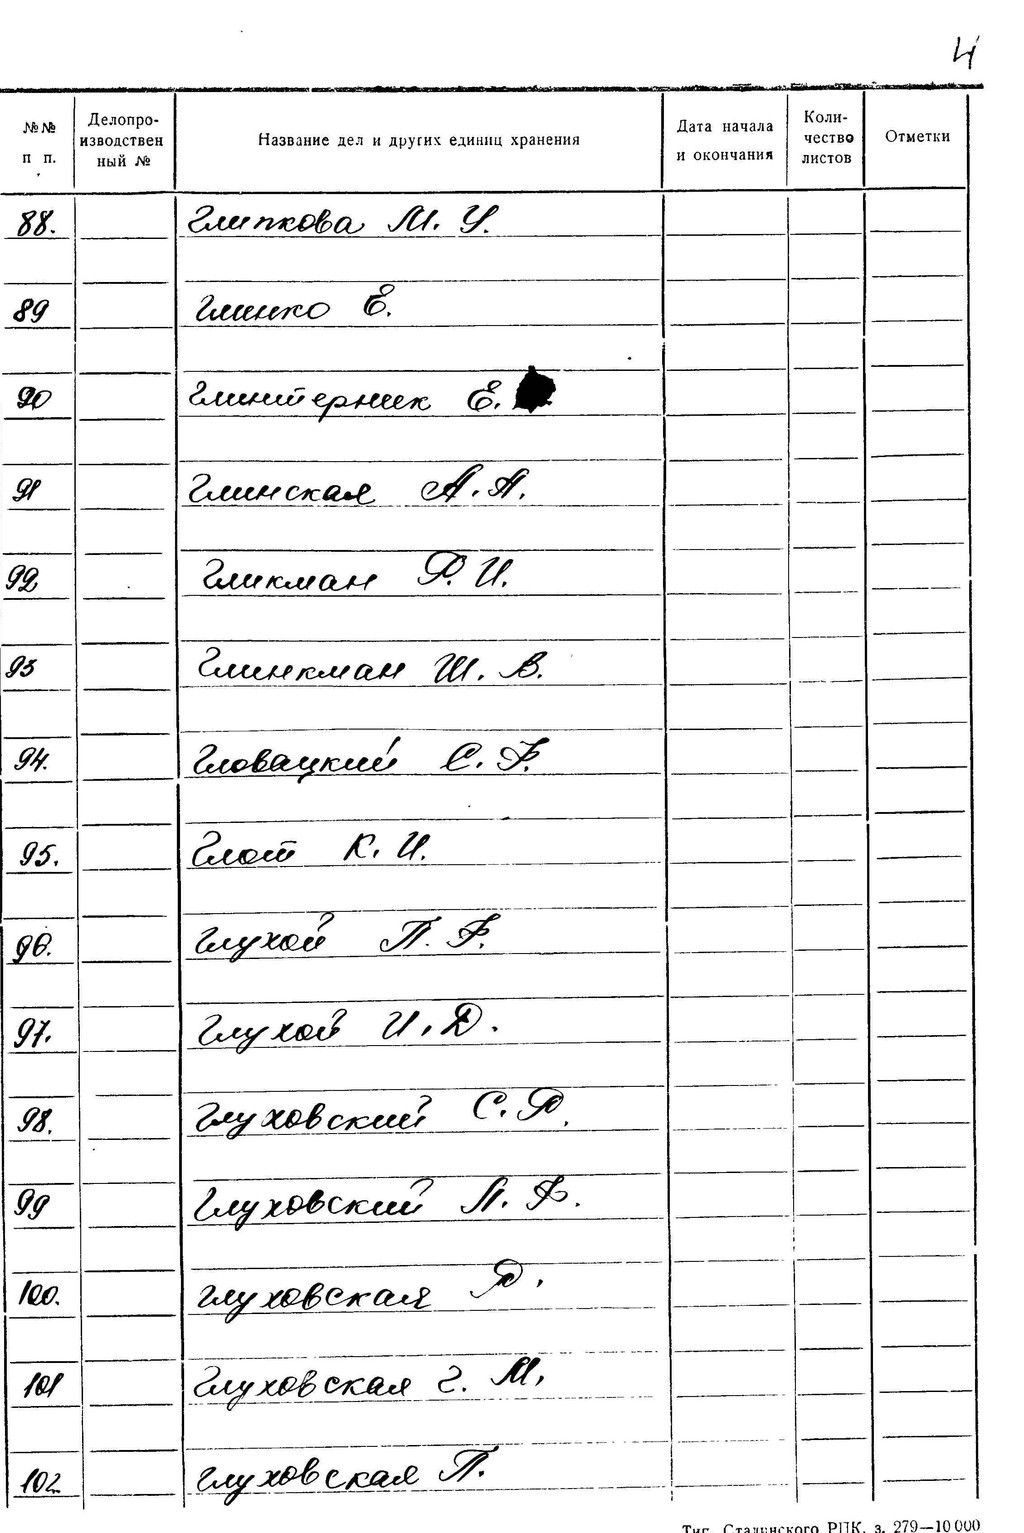 4
№№ п п. Делопро-изводствен ный № Название дел и других единиц хранения Дата начала и окончания Коли-чество листов Отметки
88. Глипкова М. У.
89 Глинко Е.
90 Глинтерник Е.
91 Глинская А. А.
92 Гликман Р. И.
93 Глинкман Ш. В.
94. Гловацкий С. Ф.
95. Глот К. И.
96. Глухой П. Ф.
97. Глухой И. Д.
98. Глуховский С. Я.
99 Глуховский Л. Ф.
100. Глуховская Я.
101 Глуховская Г. М.
102 Глуховская П.
Тип. Сталинского РПК. з. 279—10 000